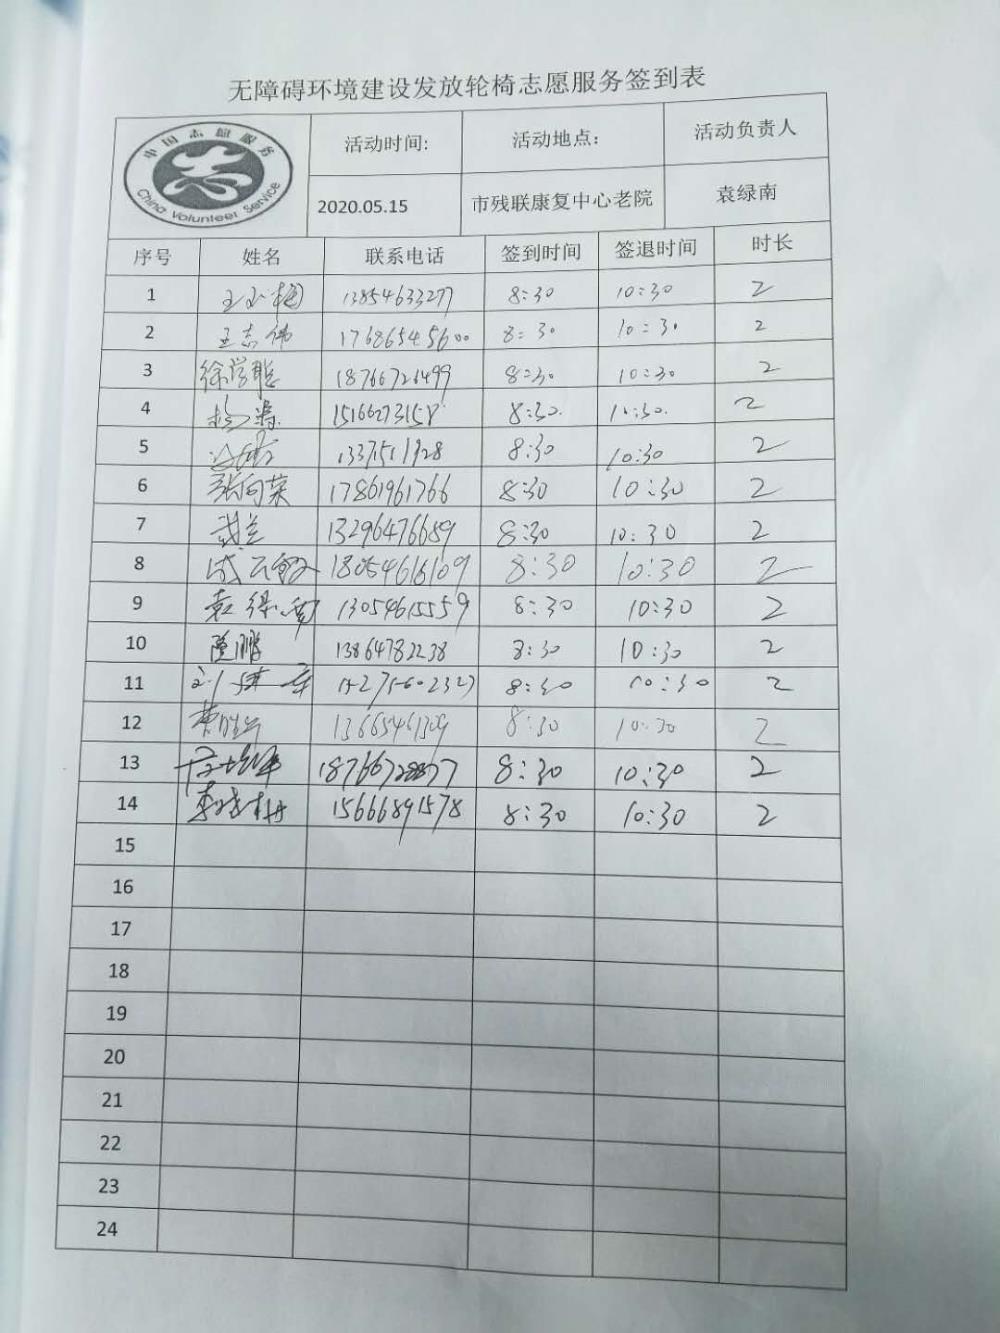 无障碍环境建设发放轮椅志愿服务签到表
中国志愿服务
China Volunteer Service
活动时间: 活动地点: 活动负责人
2020.05.15 市残联康复中心老院 袁绿南
序号 姓名 联系电话 签到时间 签退时间 时长
1 13854633277 8:30 10:30 2
2 王志伟 17686545600 8:30 10:30 2
3 徐学聪 18766726499 8:30 10:30 2
4 15166273158 8:30. 10:30. 2
5 13371511928 8:30 10:30 2
6 张向荣 17861961766 8:30 10:30 2
7 武兰 13296476689 8:30 10:30 2
8 18054616109 8:30 10:30 2
9 袁绿南 13054615559 8:30 10:30 2
10 陈鹏 13864782238 8:30 10:30 2
11 15275602327 8:30 10:30 2
12 13665461309 8:30 10:30 2
13 8:30 10:30 2
14 李晓丹 15666891578 8:30 10:30 2
15
16
17
18
19
20
21
22
23
24